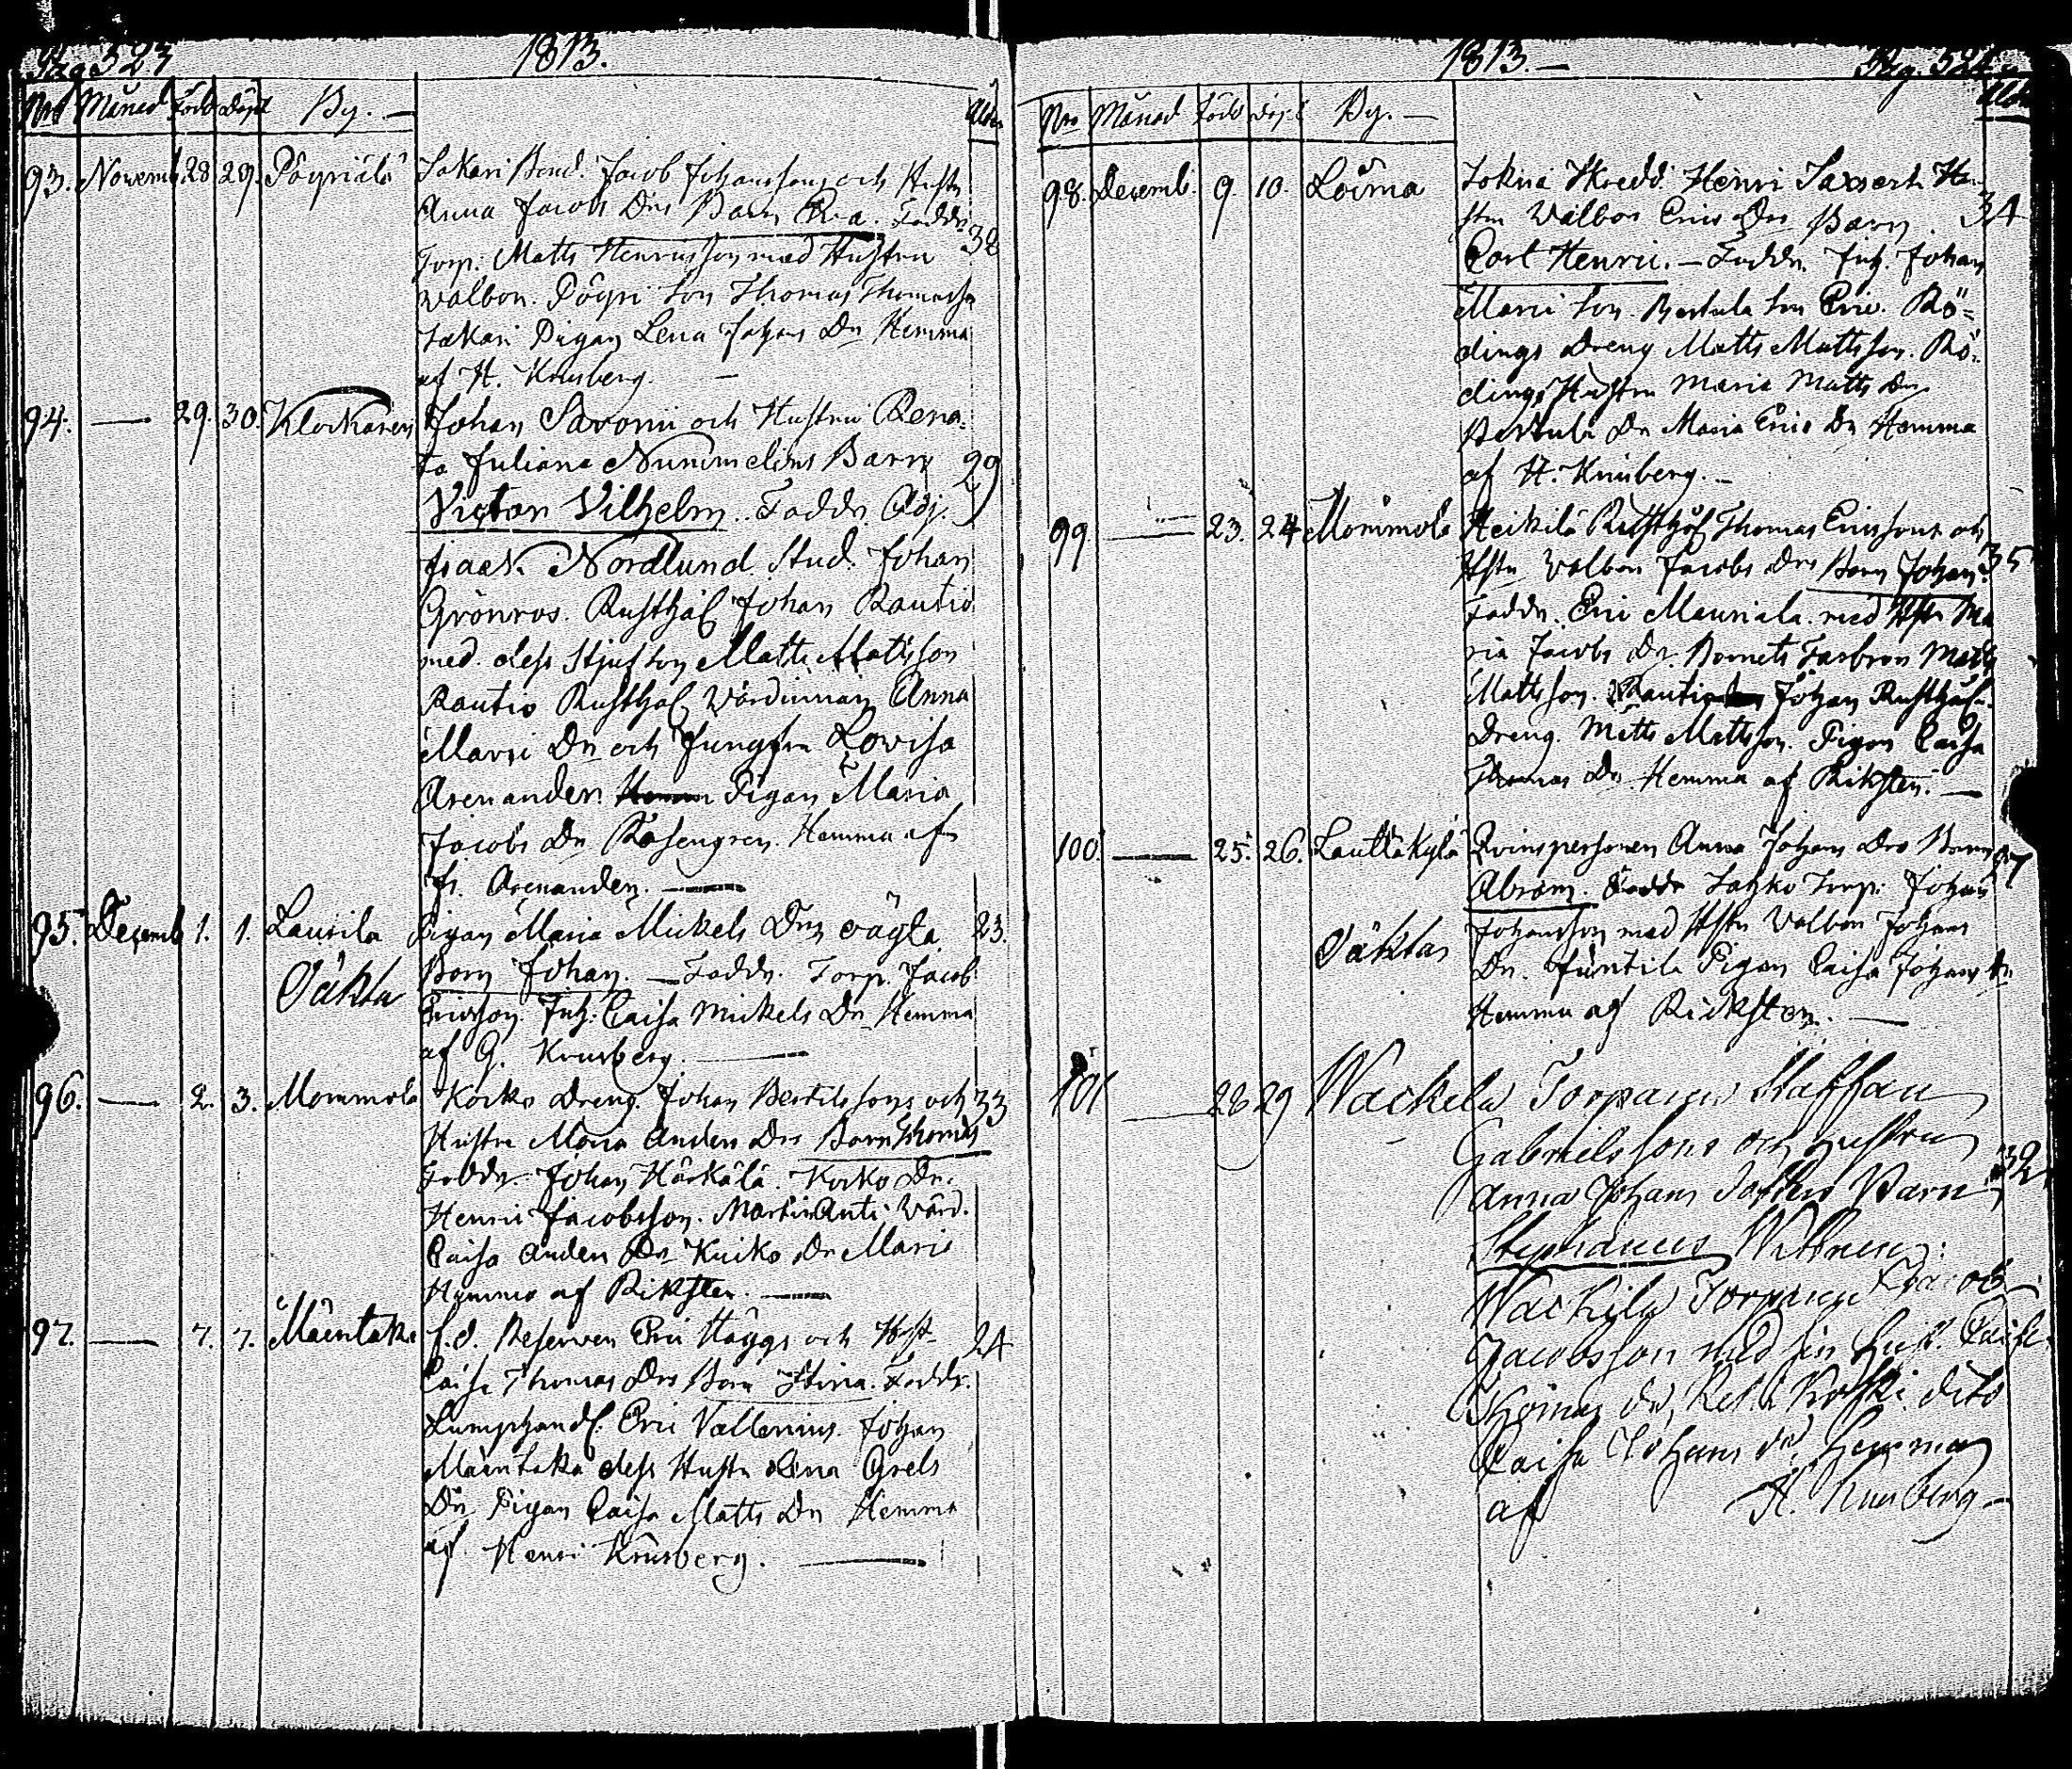 Pag 523
1813.
Nro Månad Född Döpt By. — Ålder
93. Novemb. 28 29. Pöyriälä Jakari Bond. Jacob Johanssons och Hustr
Anna Jacobs Drs Barn Eva. Faddr. 38
Torp. Matts Henricsson med Hustru
Walbor. Pöyri Son Thomas Thomasson
Jakari Pigan Lena Johans Dr Hemma
af H. Krusberg. —
94. — 29. 30. Klockaren Johan Savonii och Hustru Rena-
ta Juliana Nummelins Barn 29
Victor Vilhelm. Faddr. Adj.
Isaac Nordlund. Stud. Johan
Grönros. Rusthål. Johan Rautio
med dess Stjufson Matts Mattsson
Rautio Rusthål. Värdinnan Anna
Marri Dr och Jungfru Lovisa
Arenander. Pigan Maria
Jacobs Dr Rosengren. Hemma af
Is. Arenander. —
95. Decemb 1. 1. Laurila Pigan Maria Mickels Drs oägta 23.
Oäkta Barn Johan. — Faddr. Torp. Jacob
Ericsson. Inh. Caisa Mickels Dr Hemma
af G. Krusberg. —
96. — 2. 3. Mommola Korko Dreng Johan Bertilssons och 33
Hustru Maria Anders Drs Barn Thomas
Faddr. Johan Härkälä. Korko Dr.
Henric Jacobsson. Martin Anti Värd.
Caisa Anders Dr Kuiko Dr Maria
Hemma af Riksten. —
97. — 7. 7. Mäentaka f.d. Reserven Eric Häggs och Hust
Caisa Thomas Drs Barn Stina. Faddr. 24
Lumphandl. Eric Vallenius. Johan
Mäentaka dess Hustr Lena Grels
Dr Pigan Caisa Matts Dr Hemma
af Henric Krusberg. —
1813. —
Pag. 524
Nro Månad Född Döpt By. — Ålder
98. Decemb. 9. 10. Loima Jokua Skredd. Henric Saxberk Hu-
stru Walbor Erics Drs Barn 34
Carl Henric. — Faddr. Inh. Johan
Marri Son. Bertula Son Eric. Rö-
dings Dreng Matts Mattsson. Rö-
dings Hustru Maria Matts Dr
Bertula Dr Maria Erics Dr Hemma
af H. Krusberg. —
99 — 23. 24 Mommola Heikilä Rusthål Thomas Ericssons och
Hstr Walbor Jacobs Drs Barn Johan. 35
Faddr. Eric Mauriala med Hstr Ma
ria Jacobs Dr. Barnets Farbror Matts
Mattsson. Rautio Johan Rusthål.
Dreng. Matts Mattsson. Pigan Caisa
Thomas Dr Hemma af Riksten. —
100. — 25. 26. Lauttakylä Qvinspersonen Anna Johans Drs Barn 27
Abram. Faddr Jahko Torp. Johan
Oäktas Johansson med Hstr Walbor Johans
Dr. Juntila Pigan Caisa Johans Dr
Hemma af Ricksten. —
101 — 28 29 Wackela Torparen Staffan
Gabrielssons och hustrun
Anna Johans dotters Barn 32
Stephanus Wittnen:
Wackila Torparen Jacob
Jacobsson med sin hust. Caisa
Thomas dr, Koski dito
Caisa Johans dr hemma
af H. Krusberg —